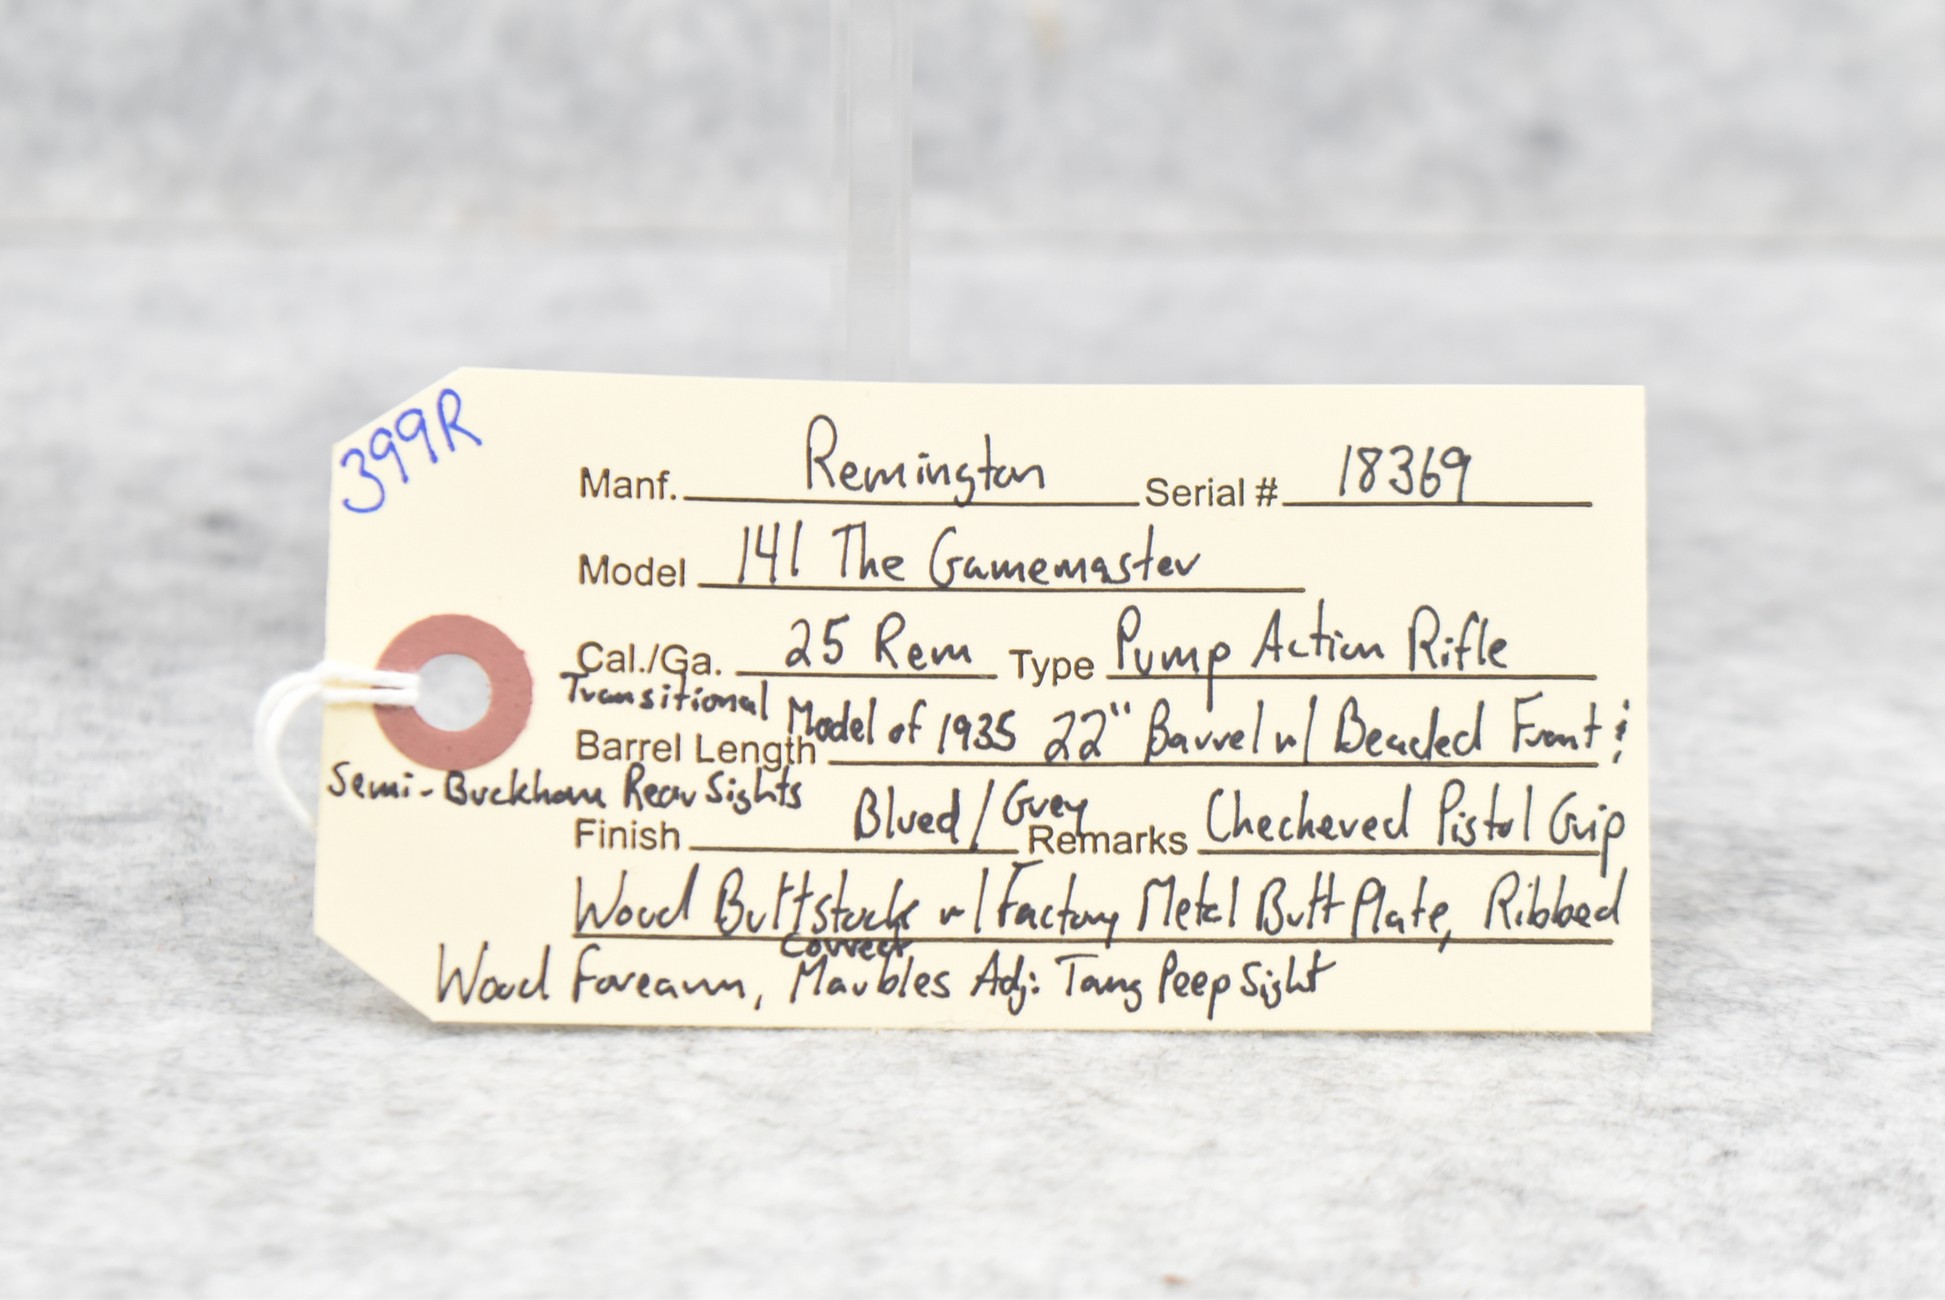 399R
Manf. Remington Serial # 18369
Model 141 The Gamemaster
Cal./Ga. 25 Rem Type Pump Action Rifle
Transitional Model of 1935 22" Barrel w/ Beaded Front &
Barrel Length
Semi-Buckhorn Rear Sights
Finish Blued/Grey Remarks Checkered Pistol Grip
Wood Buttstock w/ Factory Metal Butt Plate, Ribbed
Correct
Wood Forearm, Marbles Adj: Tang Peep Sight